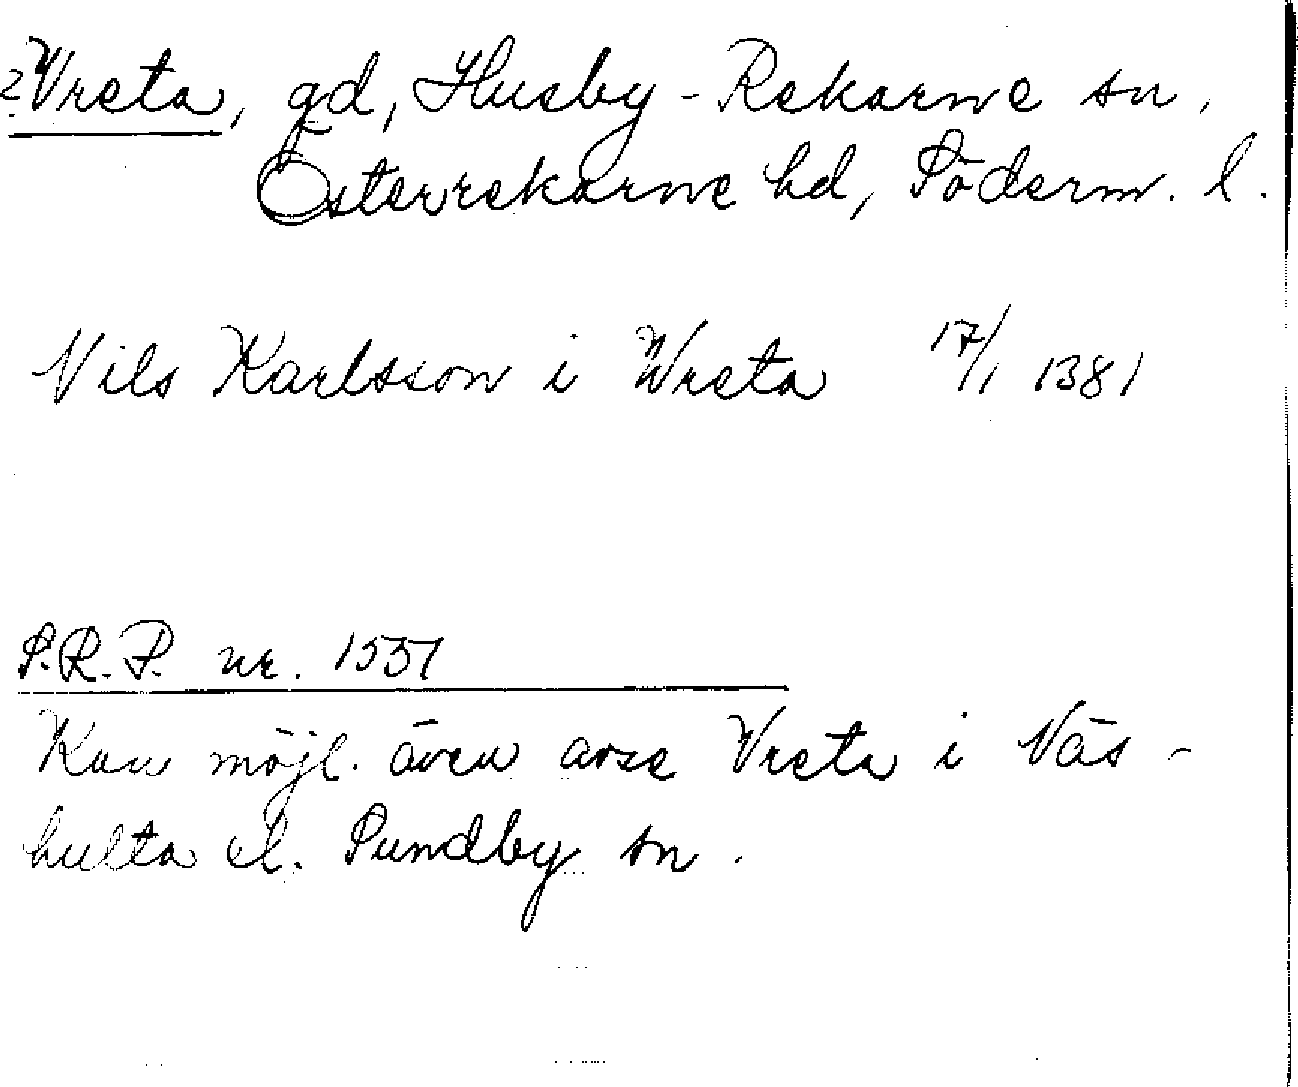 ? Vreta, gd, Husby-Rekarne sn,
Österrekarne hd, Söderm. l.
Nils Karlsson i Wreta 17/1 1381
S.R.P. nr. 1557
Kan möjl. även avse Vreta i Näs-
hulta el. Sundby sn.